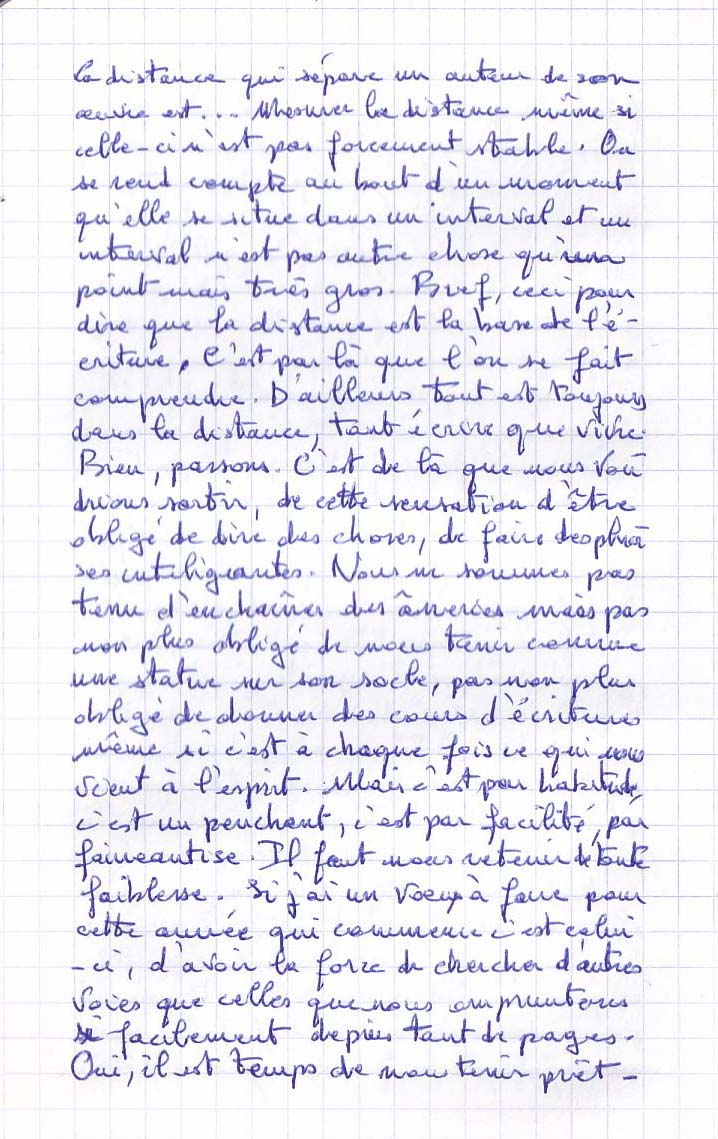 La distance qui sépare un auteur de son
œuvre est... Mesurer la distance même si
celle-ci n'est pas forcement stable. On
se rend compte au bout d'un moment
qu'elle se situe dans un interval et un
interval n'est pas autre chose qu'un
point mais très gros. Bref, ceci pour
dire que la distance est la base de l'é-
criture, C'est par là que l'on se fait
comprendre. D'ailleurs tout est toujours
dans la distance, tant écrire que vivre.
Bien, passons. C'est de là que nous vou
drions sortir, de cette sensation d'être
obligé de dire des choses, de faire des phra
ses inteligeantes. Nous ne sommes pas
tenu d'enchaîner des âneries mais pas
non plus obligé de nous tenir comme
une statue sur son socle, pas non plus
obligé de donner des cours d'écritures
même si c'est à chaque fois ce qui nous
vient à l'esprit. Mais c'est par habitude,
c'est un penchant, c'est par facilité, par
faineantise. Il faut nous retenir de toute
faiblesse. Si j'ai un voeux à faire pour
cette année qui commence c'est celui
-ci, d'avoir la force de chercher d'autres
voies que celles que nous empruntons
si facilement depuis tant de pages.
Oui, il est temps de nous tenir prêt-